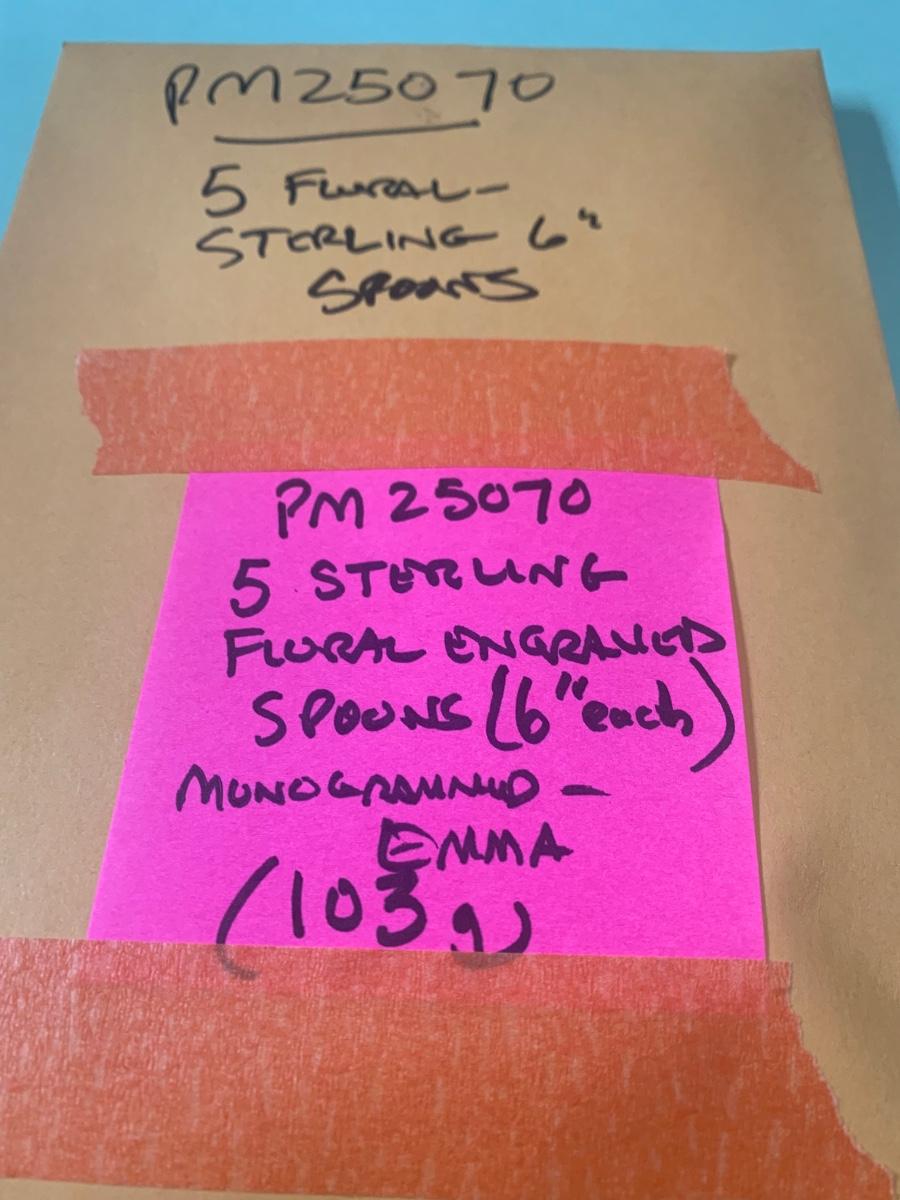 PM25070
5 FLORAL-
STERLING 6"
SPOONS
PM 25070
5 STERLING
FLORAL ENGRAVED
SPOONS (6" each)
MONOGRAMMED -
EMMA
(103 g)